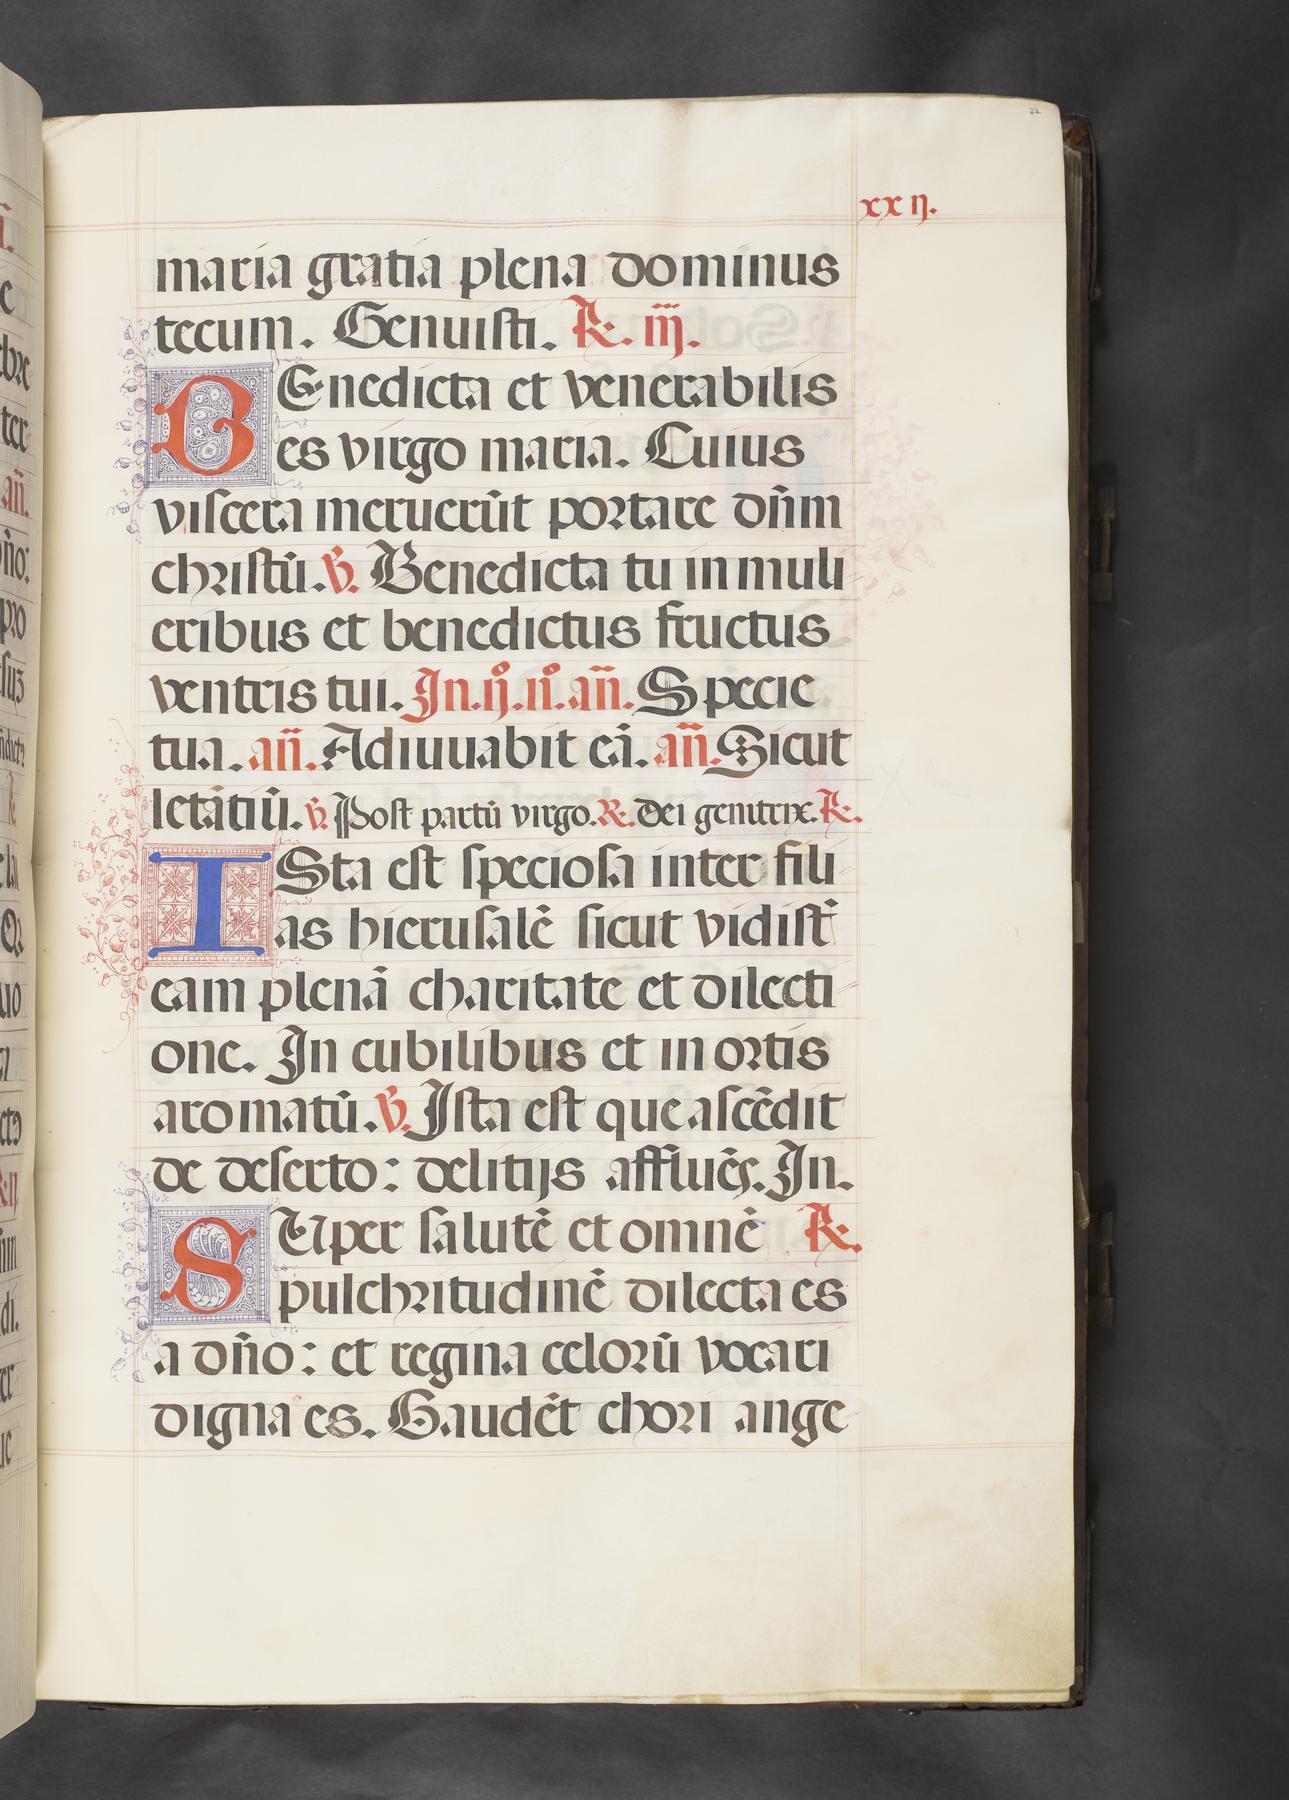 22
xx ij.
maria gratia plena dominus
tecum. Genuisti. R. iij.
BEnedicta et venerabilis
es virgo maria. Cuius
viscera meruerūt portare dn̄m
christū. V. Benedicta tu in muli
eribus et benedictus fructus
ventris tui. In. ijº. nº. añ. Specie
tua. añ. Adiuuabit eā. añ. Sicut
letātiū. V. Post partū virgo. R. Dei genitrix. R.
ISta est speciosa inter fili
as hierusalē sicut vidist̄
eam plenā charitate et dilecti
one. In cubilibus et in ortis
aromatū. V. Ista est que ascēdit
de deserto: delitijs affluēs. In.
SUper salutē et omnē R.
pulchritudinē dilecta es
a dño: et regina celorū vocari
digna es. Gaudēt chori ange